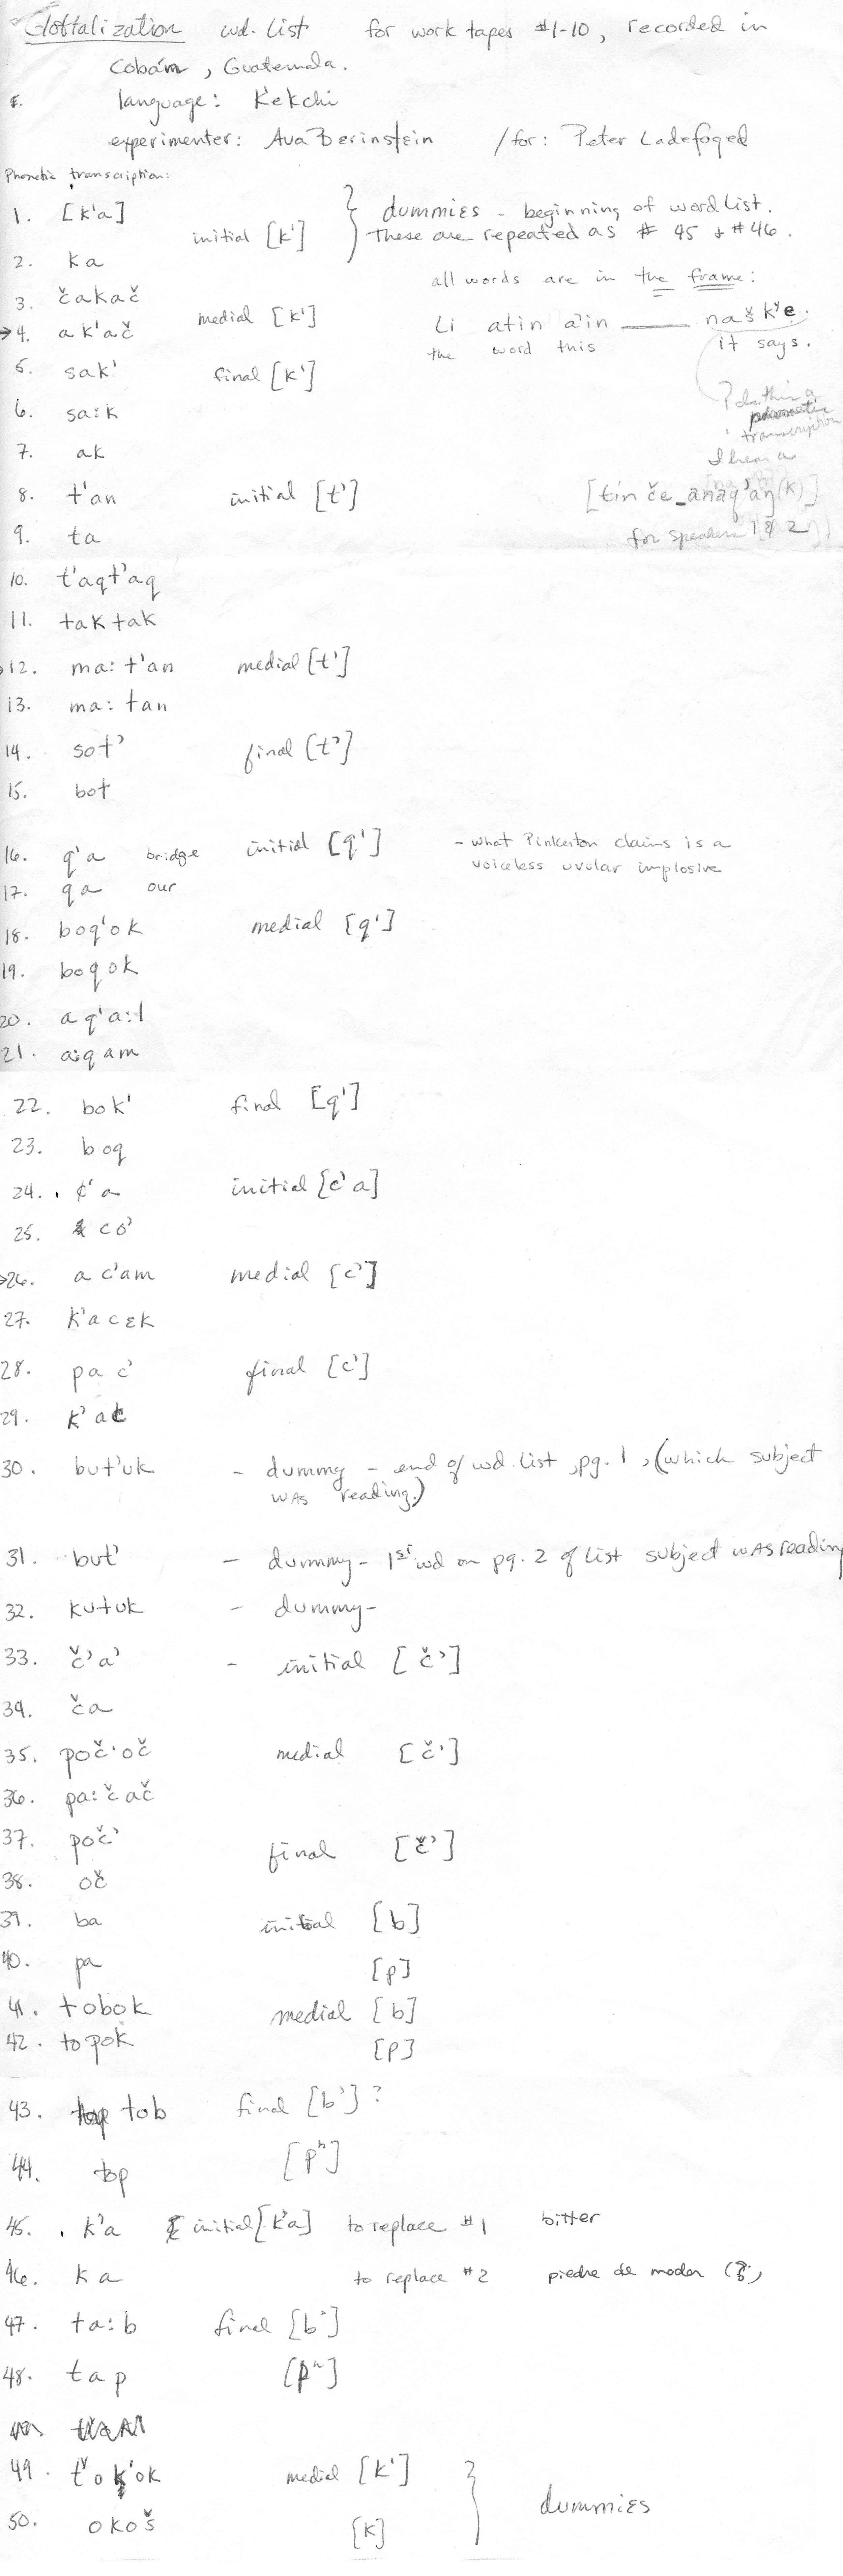 Glottalization wd. list for work tapes #1-10, recorded in
Cobán, Guatemala.
language: K'ekchi
experimenter: Ava Berinstein /for: Peter Ladefoged
Phonetic transcription:
1. [k'a] initial [k'] } dummies - beginning of word list.
These are repeated as # 45 + #46.
2. ka
all words are in the frame:
3. čakač
→4. ak'ač medial [k'] Li atin a'in ___ naš k'e.
the word this it says.
5. sak' final [k']
6. sa:k
? do this a phonetic transcription
7. ak
I hear a
8. t'an initial [t'] [tin če_anaq'aŋ(k)]
9. ta for speakers 1 & 2
10. t'aqt'aq
11. taktak
→12. ma: t'an medial [t']
13. ma: tan
14. sot' final [t']
15. bot
16. q'a bridge initial [q'] - what Pinkerton claims is a
voiceless uvular implosive
17. qa our
18. boq'ok medial [q']
19. boqok
20. aq'a:l
21. a:qam
22. bok' final [q']
23. boq
24. ¢'a initial [c'a]
25. co'
→26. ac'am medial [c']
27. k'acɛk
28. pac' final [c']
29. k'ac
30. but'uk - dummy - end of wd. list, pg. 1, (which subject
was reading.)
31. but' - dummy - 1st wd on pg. 2 of list subject was reading
32. kutuk - dummy -
33. č'a' - initial [č']
34. ča
35. poč'oč medial [č']
36. pa:čač
37. poč' final [č']
38. oč
39. ba initial [b]
40. pa [p]
41. tobok medial [b]
42. topok [p]
43. tob final [b']?
44. top [pʰ]
45. k'a initial [k'a] to replace #1 bitter
46. ka to replace #2 piedre de moler (?)
47. ta:b final [b']
48. tap [pʰ]
49. k'ok medial [k'] } dummies
50. okoš [k]